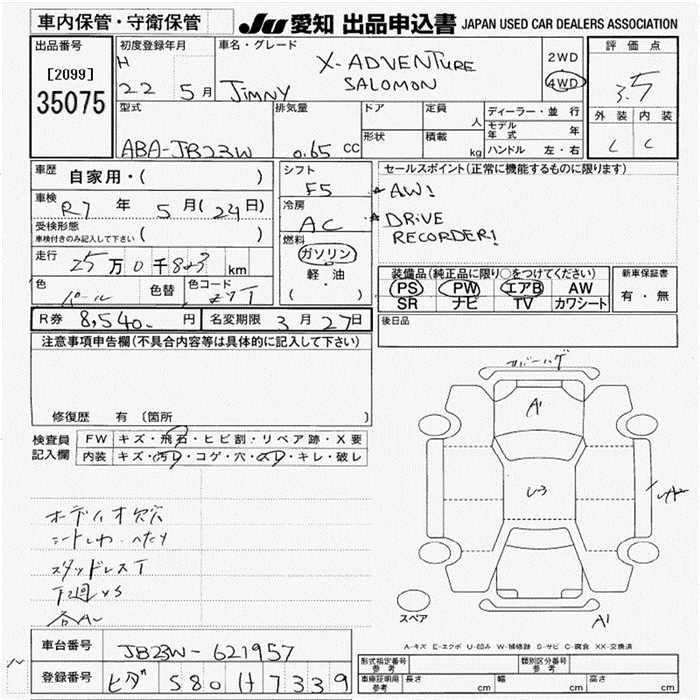 車内保管・守衛保管
JU 愛知 出品申込書 JAPAN USED CAR DEALERS ASSOCIATION
出品番号
[2099]
35075
初度登録年月
H
22 5月
車名・グレード
JIMNY
X-ADVENTURE
SALOMON
2WD
4WD
評価点
3.5
外装 内装
C C
型式
ABA-JB23W
排気量
0.65 CC
ドア
形状
定員
人
積載
kg
ディーラー・並行
モデル年式 年
ハンドル 左・右
車歴
自家用・( )
車検
R7 年 5月(29日)
受検形態
車検付きのみ記入して下さい ( )
走行
25万0千803km
色
パール
色替
色コード
ZYT
シフト
F5
冷房
AC
燃料
ガソリン
軽油
( ・ )
セールスポイント(正常に機能するものに限ります)
★ AW!
★ DRIVE
RECORDER!
装備品(純正品に限り○をつけてください)
PS PW エアB AW
SR ナビ TV カワシート
新車保証書
有・無
R券 8,540. 円 名変期限 3月27日
後日品
注意事項申告欄(不具合内容等は具体的に記入して下さい)
修復歴 有 〔箇所 〕
検査員
記入欄
FW キズ・飛石・ヒビ割・リペア跡・X要
内装 キズ・汚レ・コゲ・穴・スレ・キレ・破レ
オーディオ欠
シートしわ、へたり
スタッドレスT
下廻りS
各AU
A1
U3
A1
スペア
A-キズ E-エクボ U-凹み W-補修跡 S-サビ C-腐食 XX-交換済
車台番号
JB23W-621957
登録番号
ヒダ 580 け 7339
型式指定番号
参考
類別区分番号
参考
車庫証明用
参考
長さ cm
幅 cm
高さ cm